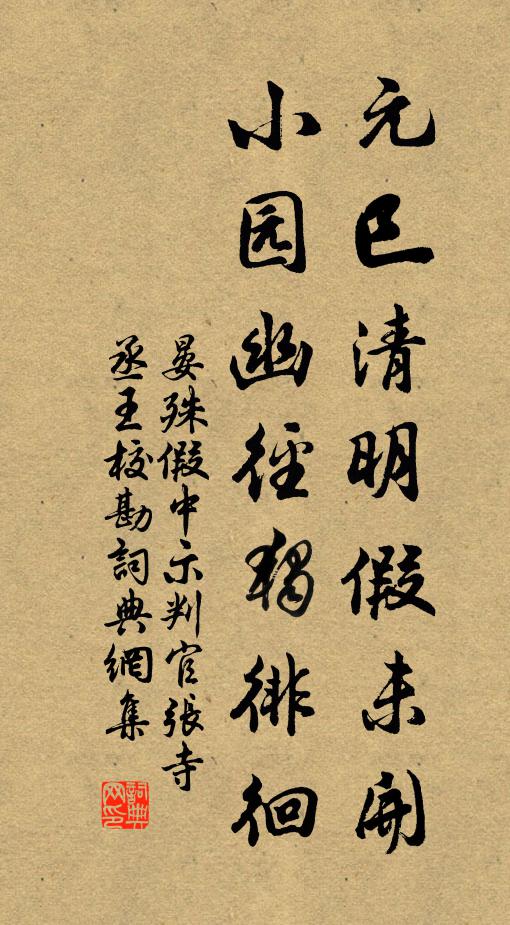 元巳清明假未開
小园幽徑獨徘徊
晏殊假中示判官張寺
丞王校勘詞典網集
詞典网印